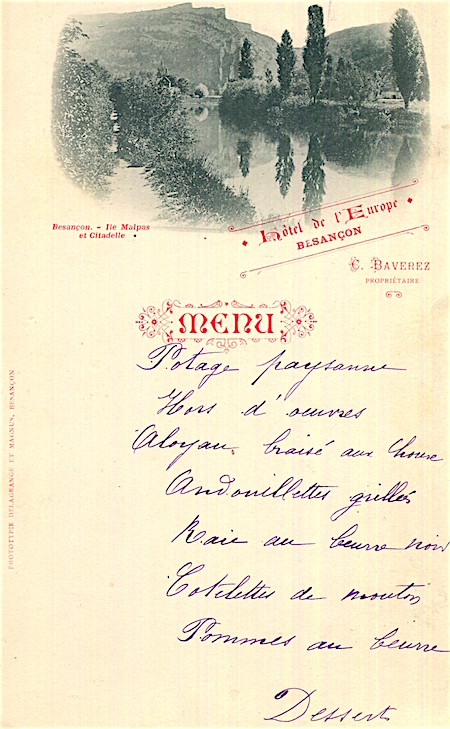 Besançon. - Ile Malpas
et Citadelle
Hôtel de l'Europe
BESANÇON
C. BAVEREZ
PROPRIÉTAIRE
MENU
Potage paysanne
Hors d'oeuvres
Aloyau braisé aux choux
Andouillettes grillés
Raie au beurre noir
Cotelettes de mouton
Pommes au beurre
Desserts
PHOTOTYPIE DELAGRANGE ET MAGNUS, BESANÇON